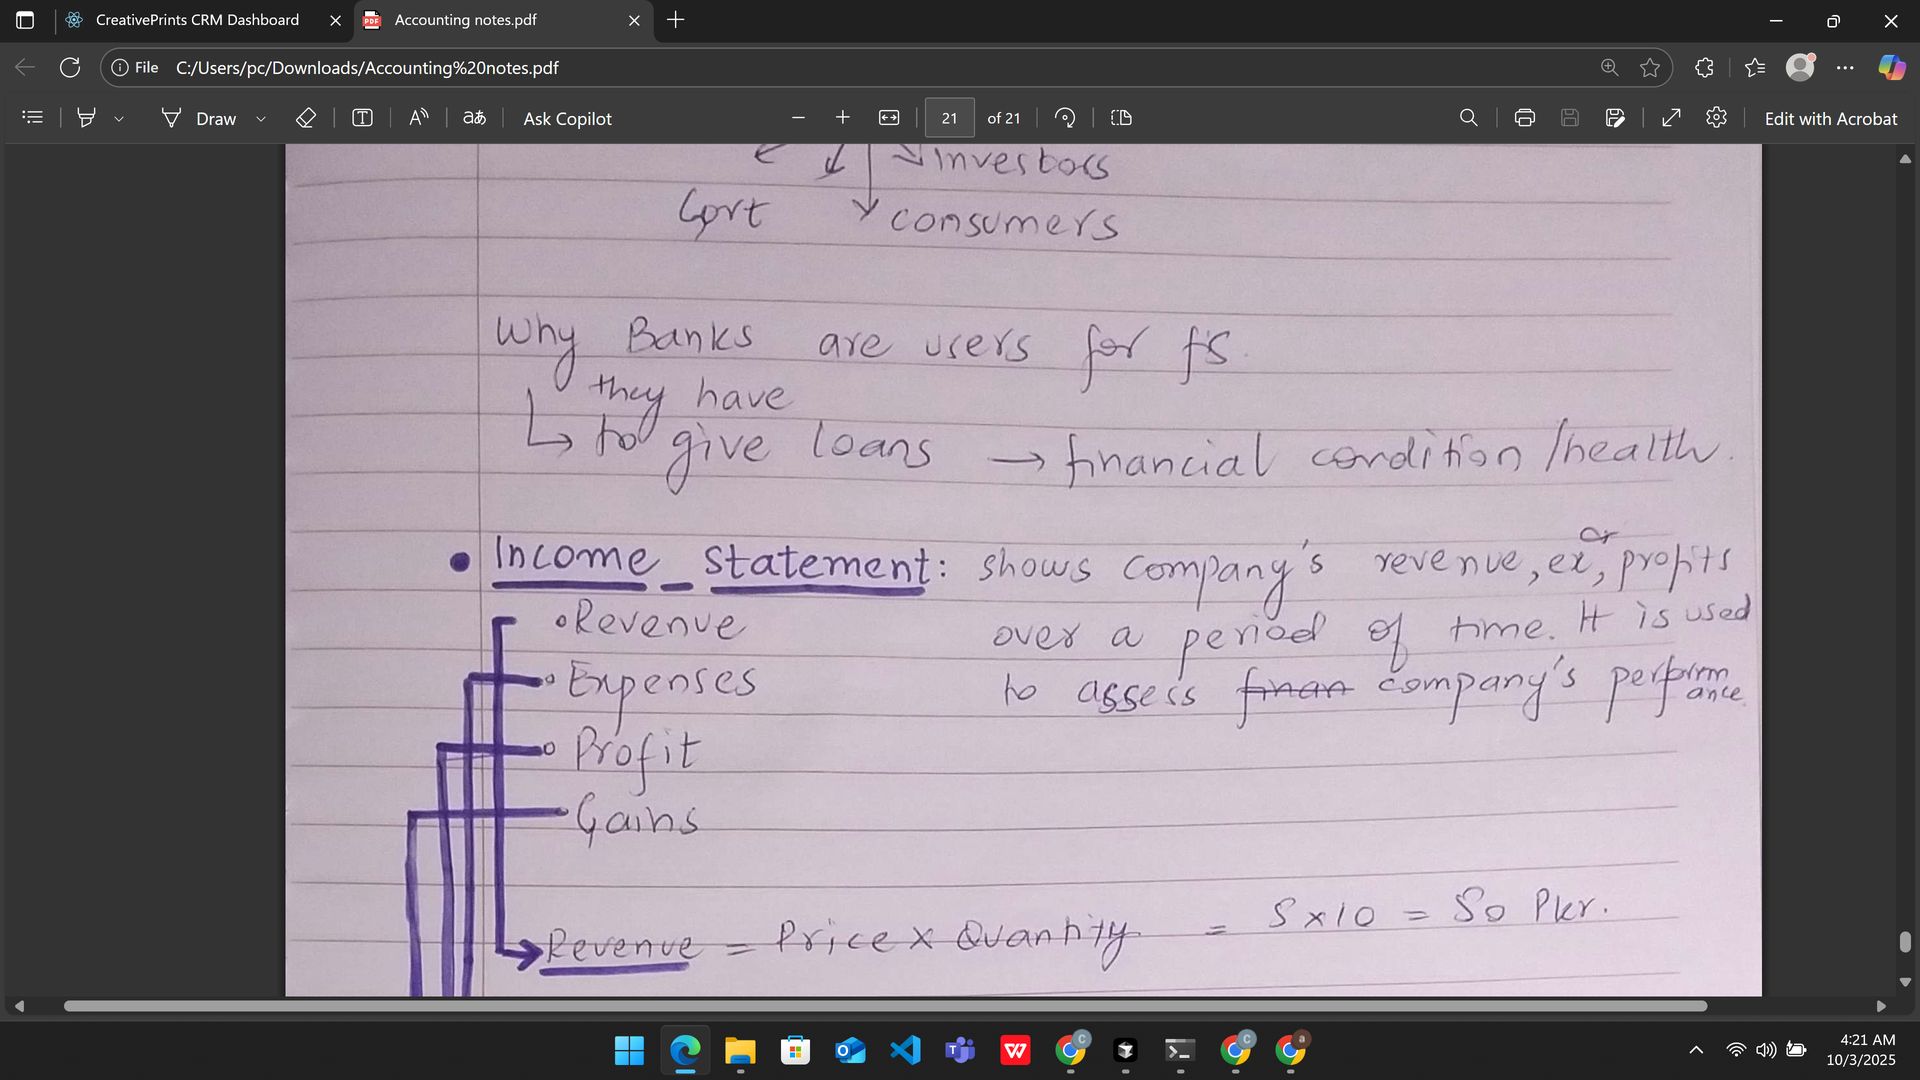 CreativePrints CRM Dashboard
Accounting notes.pdf
File C:/Users/pc/Downloads/Accounting%20notes.pdf
Draw
Ask Copilot
21 of 21
Edit with Acrobat
investors
Govt consumers
Why Banks are users for fs.
they have
to give loans → financial condition /health.
or
• Income _ statement: shows company's revenue, ex, profits
• Revenue over a period of time. It is used
• Expenses to assess finan company's perform
ance.
• Profit
• Gains
→ Revenue = Price x Quantity = 5 x 10 = 50 Pkr.
4:21 AM
10/3/2025